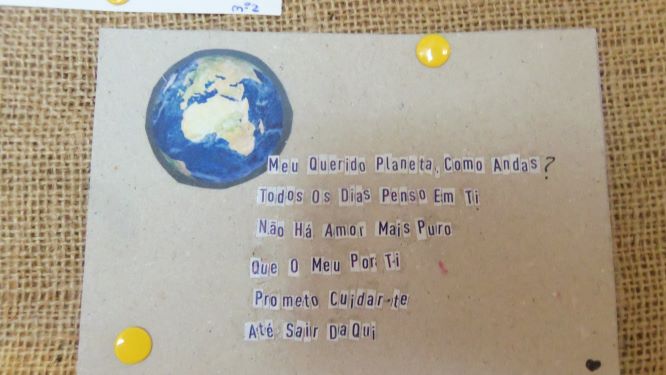 nº2
Meu Querido Planeta, Como Andas?
Todos Os Dias Penso Em Ti
Não Há Amor Mais Puro
Que O Meu Por Ti
Prometo Cuidar-te
Até Sair DaQui